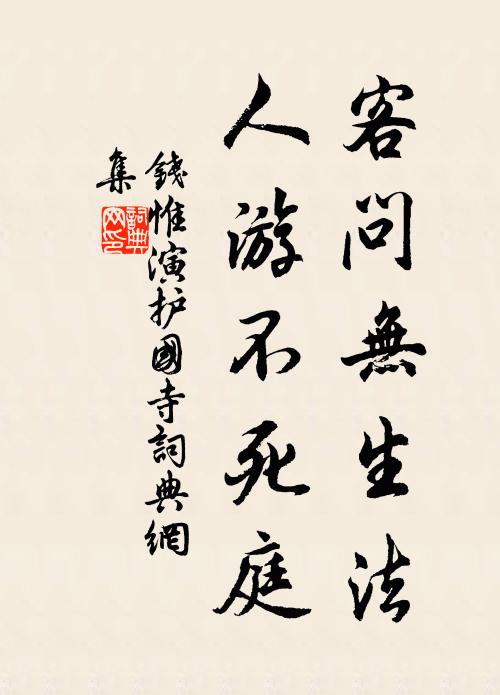 客問無生法
人游不死庭
錢惟演护國寺詞典網
集
詞典网印